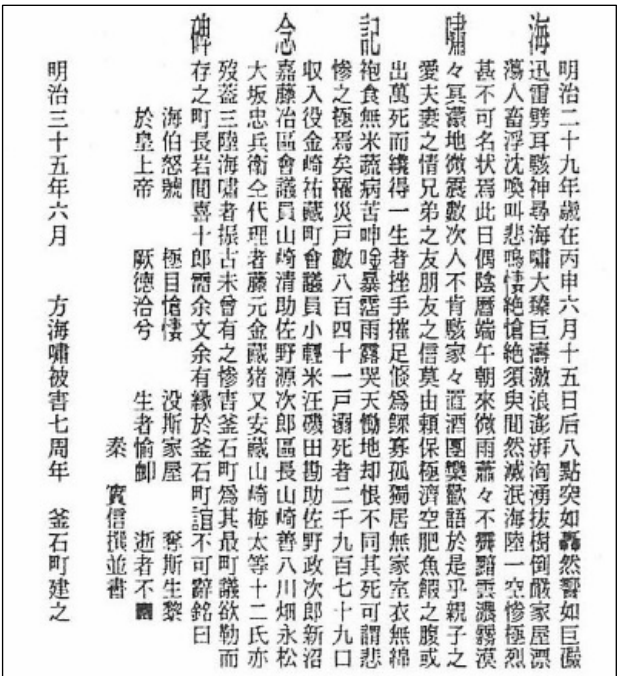 海嘯記念碑
明治二十九年歳在丙申六月十五日后八點突如轟然響如巨礮
迅雷劈耳駭神尋海嘯大臻巨濤激浪澎湃洶湧抜樹倒嚴家屋漂
蕩人畜浮沈喚叫悲鳴悽絶愴絶須臾間然滅泯海陸一空惨極烈
甚不可名状焉此日偶陰暦端午朝來微雨蕭々不霽黯雲濃霧漠
々冥濛地微震數次人不肯駭家々置酒團欒歡語於是乎親子之
愛夫妻之情兄弟之友朋友之信莫由頼保極濟空肥魚鰕之腹或
出萬死而纔得一生者挫手摧足倐為鰥寡孤獨居無家室衣無綿
袍食無米蔬病苦呻唫暴霑雨露哭天慟地却恨不同其死可謂悲
惨之極焉矣罹災戸數八百四十一戸溺死者二千九百七十九口
収入役金崎祐藏町會議員小輕米汪磯田勘助佐野政次郎新沼
嘉藤冶區會議員山崎清助佐野源次郎區長山崎善八川畑永松
大坂忠兵衛仝代理者藤元金藏猪又安藏山崎梅太等十二氏亦
歿蓋三陸海嘯者振古未曾有之惨害釜石町爲其最町議欲勒而
存之町長岩間喜十郎需余文余有縁於釜石町誼不可辭銘曰
海伯怒號 極目愴悽 没斯家屋 奪斯生黎
於皇上帝 厥德洽兮 生者愉卹 逝者不
秦 實信撰並書
明治三十五年六月 方海嘯被害七周年 釜石町建之